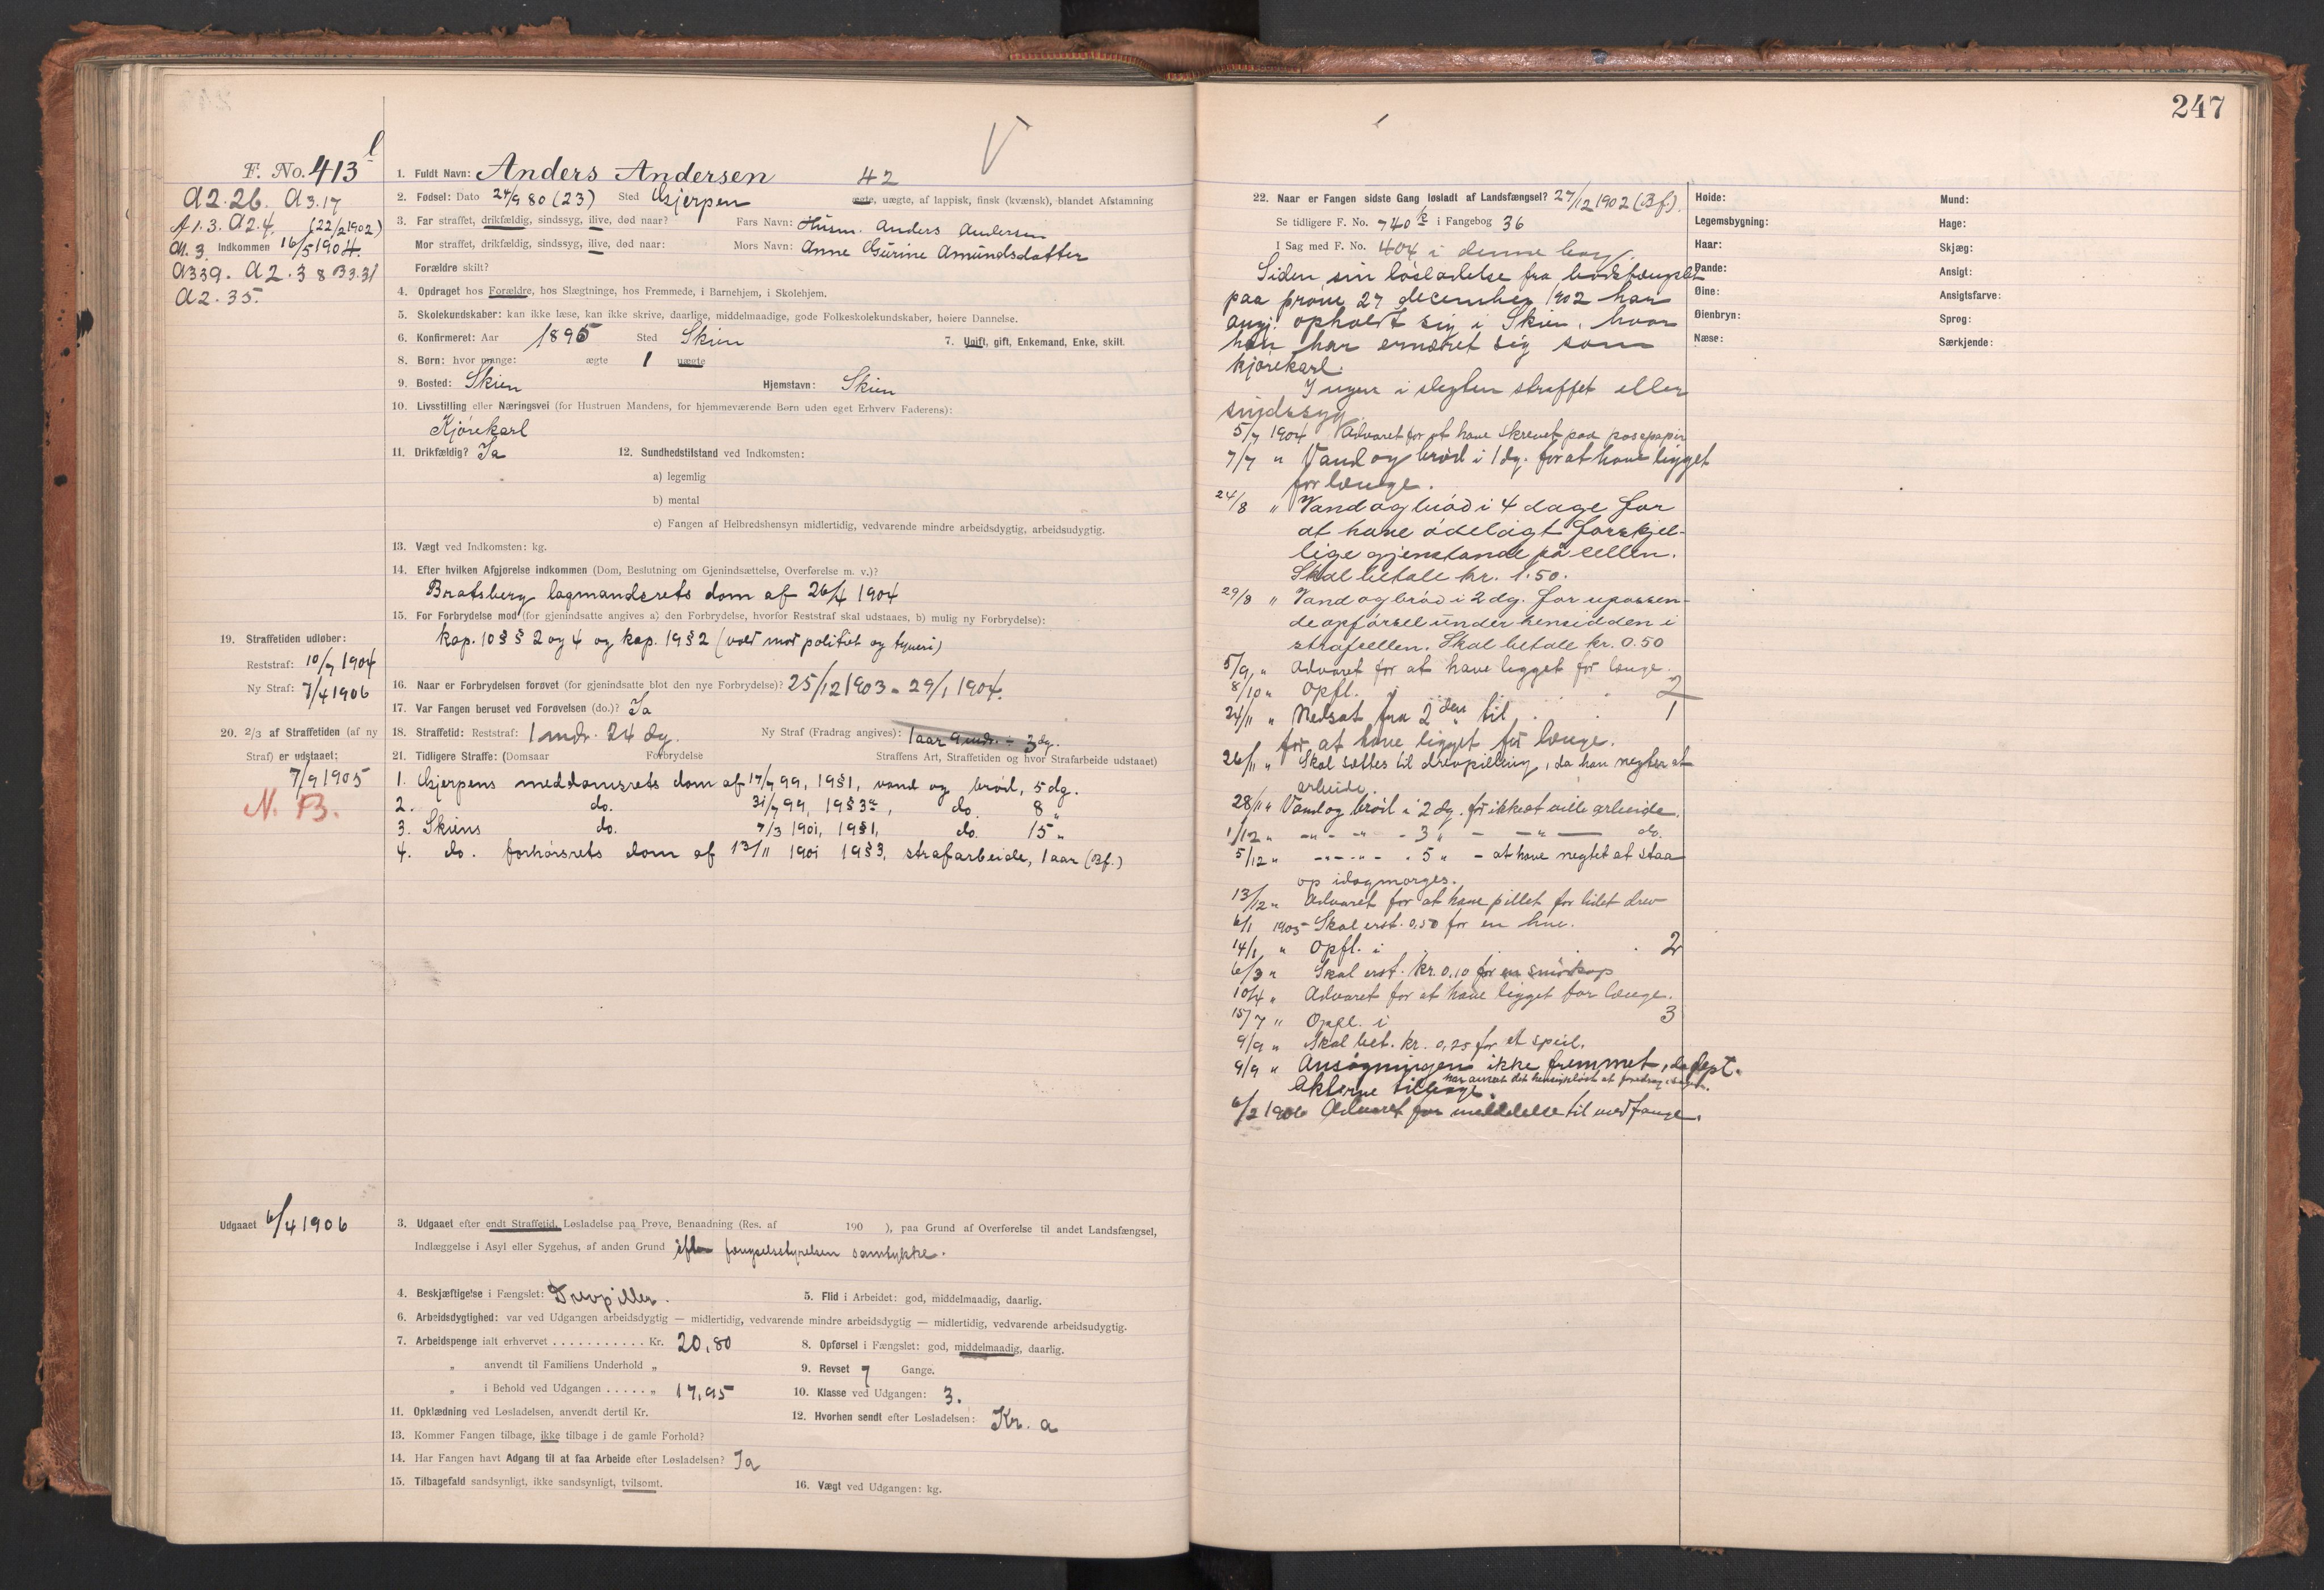 247
F. No. 413 l
A 2.26. A 3.17
A 1.3. A 2.4. (22/2 1902)
A 1. 3. Indkommen 16/5 1904.
A 339. A 2. 38 B 3.31
A 2. 35.
1. Fuldt Navn: Anders Andersen 42
2. Fødsel: Dato 24/9 80 (23) Sted Gjerpen ægte, uægte, af lappisk, finsk (kvænsk), blandet Afstamning
3. Far straffet, drikfældig, sindssyg, ilive, død naar? Fars Navn: Husm. Anders Andersen
Mor straffet, drikfældig, sindssyg, ilive, død naar: Mors Navn: Anne Gurine Amundsdatter
Forældre skilt?
4. Opdraget hos Forældre, hos Slægtninge, hos Fremmede, i Barnehjem, i Skolehjem.
5. Skolekundskaber: kan ikke læse, kan ikke skrive, daarlige, middelmaadige, gode Folkeskolekundskaber, høiere Dannelse.
6. Konfirmeret: Aar 1895 Sted Skien 7. Ugift, gift, Enkemand, Enke, skilt.
8. Børn: hvor mange: ægte 1 uægte
9. Bosted: Skien Hjemstavn: Skien
10. Livsstilling eller Næringsvei (for Hustruen Mandens, for hjemmeværende Børn uden eget Erhverv Faderens):
Kjørekarl
11. Drikfældig? Ja 12. Sundhedstilstand ved Indkomsten:
a) legemlig
b) mental
c) Fangen af Helbredshensyn midlertidig, vedvarende mindre arbeidsdygtig, arbeidsudygtig.
13. Vægt ved Indkomsten: kg.
14. Efter hvilken Afgjørelse indkommen (Dom, Beslutning om Gjenindsættelse, Overførelse m. v.)?
Bratsberg lagmandsrets dom af 26/4 1904
15. For Forbrydelse mod (for gjenindsatte angives a) den Forbrydelse, hvorfor Reststraf skal udstaaes, b) mulig ny Forbrydelse):
kap. 10 § § 2 og 4 og kap. 19 § 2 (vold mod politiet og tyveri)
19. Straffetiden udløber:
Reststraf: 10/7 1904
Ny Straf: 7/4 1906
16. Naar er Forbrydelsen forøvet (for gjenindsatte blot den nye Forbrydelse)? 25/12 1903 - 29/1 1904.
17. Var Fangen beruset ved Forøvelsen (do.)? Ja
20. 2/3 af Straffetiden (af ny Straf) er udstaaet:
7/9 1905
N. B.
18. Straffetid: Reststraf: 1 mdr. 24 dg. Ny Straf (Fradrag angives): 1 aar 9 mdr. - 3 dg.
21. Tidligere Straffe: (Domsaar Forbrydelse Straffens Art, Straffetiden og hvor Strafarbeide udstaaet)
1. Gjerpens meddomsrets dom af 17/7 99, 19 § 1, vand og brød, 5 dg.
2. do. 31/7 99, 19 § 3, do. 8 "
3. Skiens do. 7/3 1901, 19 § 1, do. 15 "
4. do. forhørsrets dom af 13/11 1901 19 § 3, strafarbeide, 1 aar (Bf.)
Udgaaet 6/4 1906
3. Udgaaet efter endt Straffetid, Løsladelse paa Prøve, Benaadning (Res. af 190 ), paa Grund af Overførelse til andet Landsfængsel,
Indlæggelse i Asyl eller Sygehus, af anden Grund efter fængselsstyrelsen samtykke.
4. Beskjæftigelse i Fængslet: Drevpiller. 5. Flid i Arbeidet: god, middelmaadig, daarlig.
6. Arbeidsdygtighed: var ved Udgangen arbeidsdygtig — midlertidig, vedvarende mindre arbeidsdygtig — midlertidig, vedvarende arbeidsudygtig.
7. Arbeidspenge ialt erhvervet . . . . . . . . . . . Kr. 20,80 8. Opførsel i Fængslet: god, middelmaadig, daarlig.
" anvendt til Familiens Underhold " 9. Revset 7 Gange.
" i Behold ved Udgangen . . . . . " 17,95 10. Klasse ved Udgangen: 3.
11. Opklædning ved Løsladelsen, anvendt dertil Kr. 12. Hvorhen sendt efter Løsladelsen: Kr. a
13. Kommer Fangen tilbage, ikke tilbage i de gamle Forhold?
14. Har Fangen havt Adgang til at faa Arbeide efter Løsladelsen? Ja
15. Tilbagefald sandsynligt, ikke sandsynligt, tvilsomt. 16. Vægt ved Udgangen: kg.
22. Naar er Fangen sidste Gang løsladt af Landsfængsel? 27/12 1902 (Bf.).
Se tidligere F. No. 740 k i Fangebog 36
I Sag med F. No. 404 i denne bog.
Siden sin løsladelse fra bodsfængslet
paa prøve 27 december 1902 har
angj. opholdt sig i Skien, hvor
han har ernæret sig som
kjørekarl.
Ingen i slegten straffet eller
sindssyg.
5/7 1904 Advaret for at have skrevet paa posepapir
7/7 " Vand og brød i 1 dg. for at have ligget
for længe.
24/8 " Vand og brød i 4 dage for
at have ødelagt forskjel-
lige gjenstande på cellen.
Skal betale kr. 1.50.
29/8 " Vand og brød i 2 dg. for upassen-
de opførsel under hensidden i
strafcellen. Skal betale kr. 0.50
5/9 " Advaret for at have ligget for længe.
8/10 " Opfl. i 2
24/11 " Nedsat fra 2den til 1
for at have ligget for længe.
26/11 " Skal sættes til drevpilling, da han negter at
arbeide.
28/11 " Vand og brød i 2 dg. for ikke at ville arbeide.
1/12 " -"- - -"- - 3 " - -"- do.
5/12 " -"- - -"- - 5 " - at have negtet at staa
op idagmorges.
13/12 " Advaret for at have pillet for lidet drev
6/1 1905 Skal erst. 0,50 for en hue.
14/1 " Opfl. i 2
6/3 " Skal erst. kr. 0.10 for en smørkop
10/4 " Advaret for at have ligget for længe.
15/7 " Opfl. i 3
9/9 " Skal bet. kr. 0,25 for et speil.
9/9 " Ansøgningen ikke fremmet, da dept.
har anset det hensigtsløst at foredrag
Akterne tillagt.
6/2 1906 Advaret for meddelelse til medfange.
Høide: Mund:
Legemsbygning: Hage:
Haar: Skjæg:
Pande: Ansigt:
Øine: Ansigtsfarve:
Øienbryn: Sprog:
Næse: Særkjende: